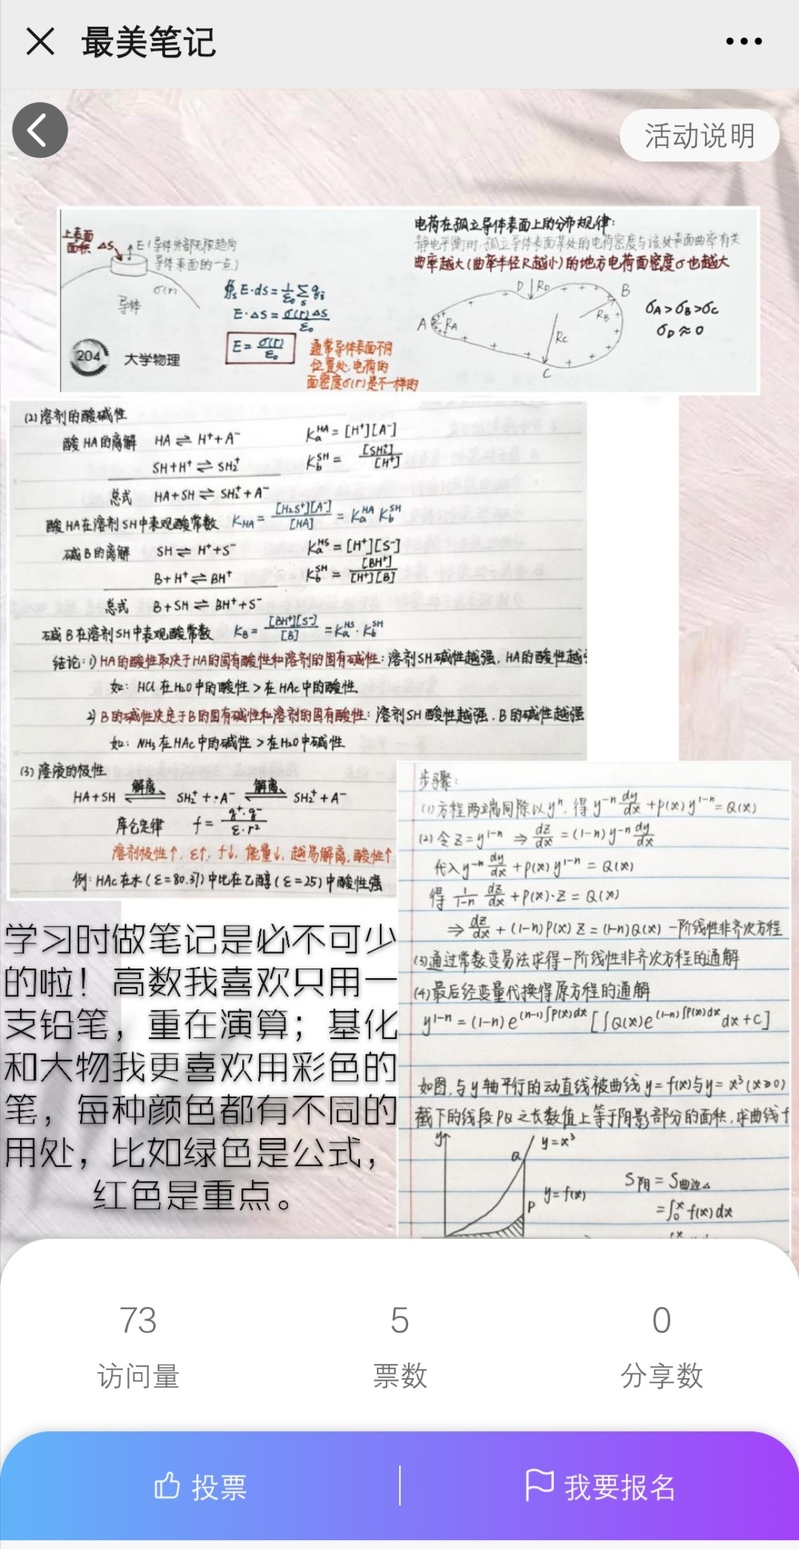 最美笔记
活动说明
上表面
面积 ΔS
E(导体外部无限趋向
导体表面的一点)
σ(r)
导体
∮s E·ds = 1/ε₀ Σ qᵢ
E·ΔS = σ(r)ΔS/ε₀
E = σ(r)/ε₀
通常导体表面不同
位置处,电荷的
面密度σ(r)是不一样的
204 大学物理
电荷在孤立导体表面上的分布规律:
静电平衡时,孤立导体表面某处的电荷密度与该处表面曲率有关
曲率越大(曲率半径R越小)的地方电荷面密度σ也越大
D R_D B
A R_A R_B
R_C
C
σ_A>σ_B>σ_C
σ_D≈0
(2)溶剂的酸碱性
酸HA的离解 HA ⇌ H⁺+A⁻ Kₐ^HA = [H⁺][A⁻]
SH+H⁺ ⇌ SH₂⁺ K_b^SH = [SH₂⁺]/[H⁺]
总式 HA+SH ⇌ SH₂⁺+A⁻
酸HA在溶剂SH中表观酸常数 K_HA = [H₂S⁺][A⁻]/[HA] = Kₐ^HA K_b^SH
碱B的离解 SH ⇌ H⁺+S⁻ Kₐ^HS = [H⁺][S⁻]
B+H⁺ ⇌ BH⁺ K_b^SH = [BH⁺]/[H⁺][B]
总式 B+SH ⇌ BH⁺+S⁻
碱B在溶剂SH中表观酸常数 K_B = [BH⁺][S⁻]/[B] = Kₐ^HS·K_b^SH
结论:1)HA的酸性取决于HA的固有酸性和溶剂的固有碱性:溶剂SH碱性越强,HA的酸性越
如:HCl在H₂O中的酸性>在HAc中的酸性
2)B的碱性决定于B的固有碱性和溶剂的固有酸性:溶剂SH酸性越强,B的碱性越强
如:NH₃在HAc中的碱性>在H₂O中碱性
(3)溶液的极性
HA+SH ⇌(解离) SH₂⁺·A⁻ ⇌(解离) SH₂⁺+A⁻
库仑定律 f = q⁺·q⁻/ε·r²
溶剂极性↑,ε↑,f↓,能量↓,越易解离,酸性↑
例:HAc在水(ε=80.37)中比在乙醇(ε=25)中酸性强
步骤:
(1)方程两端同除以yⁿ,得y⁻ⁿ dy/dx + p(x)y¹⁻ⁿ = Q(x)
(2)令z=y¹⁻ⁿ ⇒ dz/dx = (1-n)y⁻ⁿ dy/dx
代入y⁻ⁿ dy/dx + p(x)y¹⁻ⁿ = Q(x)
得 1/(1-n) dz/dx + p(x)·z = Q(x)
⇒ dz/dx + (1-n)p(x)z = (1-n)Q(x) 一阶线性非齐次方程
(3)通过常数变易法求得一阶线性非齐次方程的通解
(4)最后经变量代换得原方程的通解
y¹⁻ⁿ = (1-n)e^((n-1)∫p(x)dx) [∫Q(x)e^((1-n)∫p(x)dx) dx+C]
如图,与y轴平行的动直线被曲线y=f(x)与y=x³(x≥0)
截下的线段PQ之长数值上等于阴影部分的面积,求曲线f
y
Q y=x³
y=f(x)
P
S阴 = S曲边△
= ∫₀ˣ f(x)dx
学习时做笔记是必不可少
的啦!高数我喜欢只用一
支铅笔,重在演算;基化
和大物我更喜欢用彩色的
笔,每种颜色都有不同的
用处,比如绿色是公式,
红色是重点。
73 5 0
访问量 票数 分享数
投票 我要报名